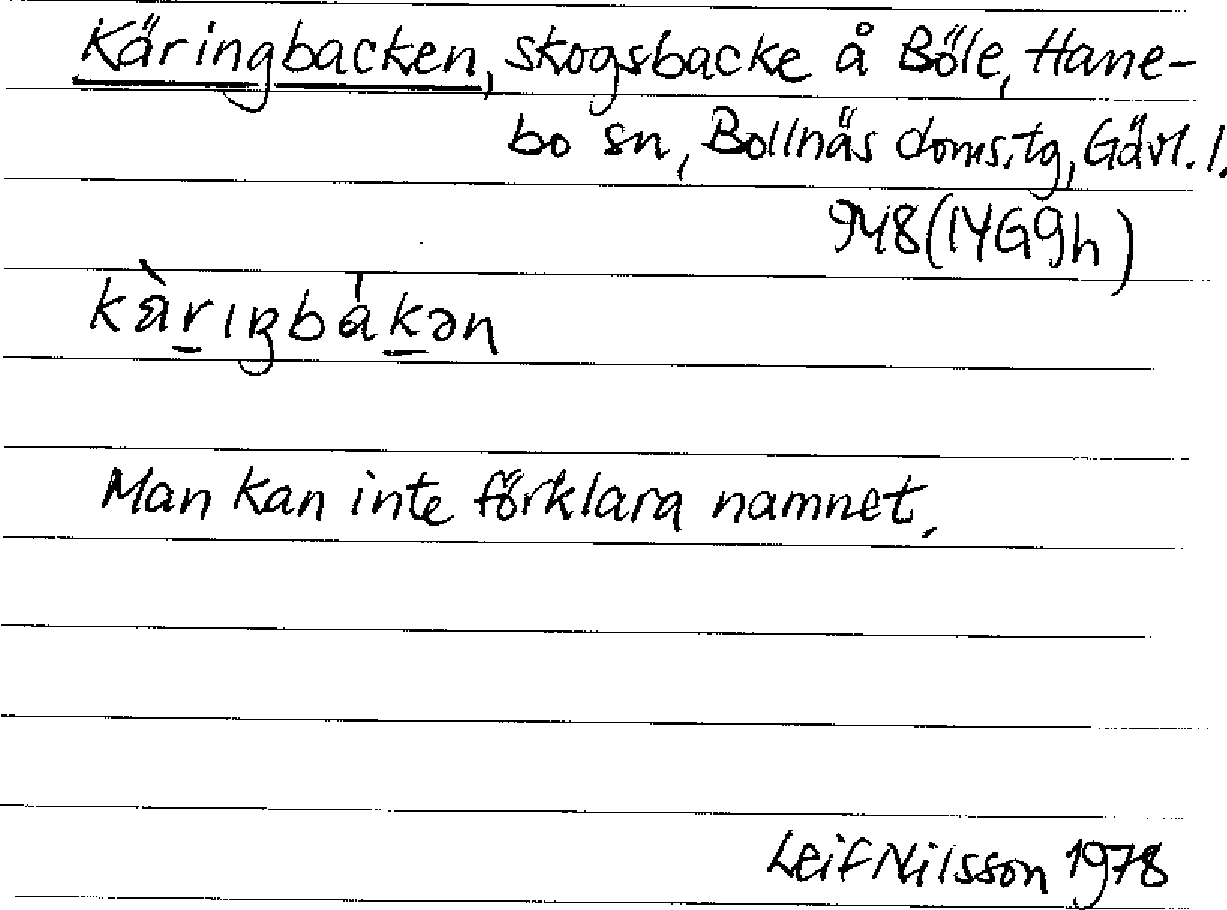 Käringbacken, skogsbacke å Böle, Hane-
bo sn, Bollnäs doms.tg, Gävl. l.
948 (14G9h)
kæ̀rıŋbákən
Man kan inte förklara namnet.
Leif Nilsson 1978